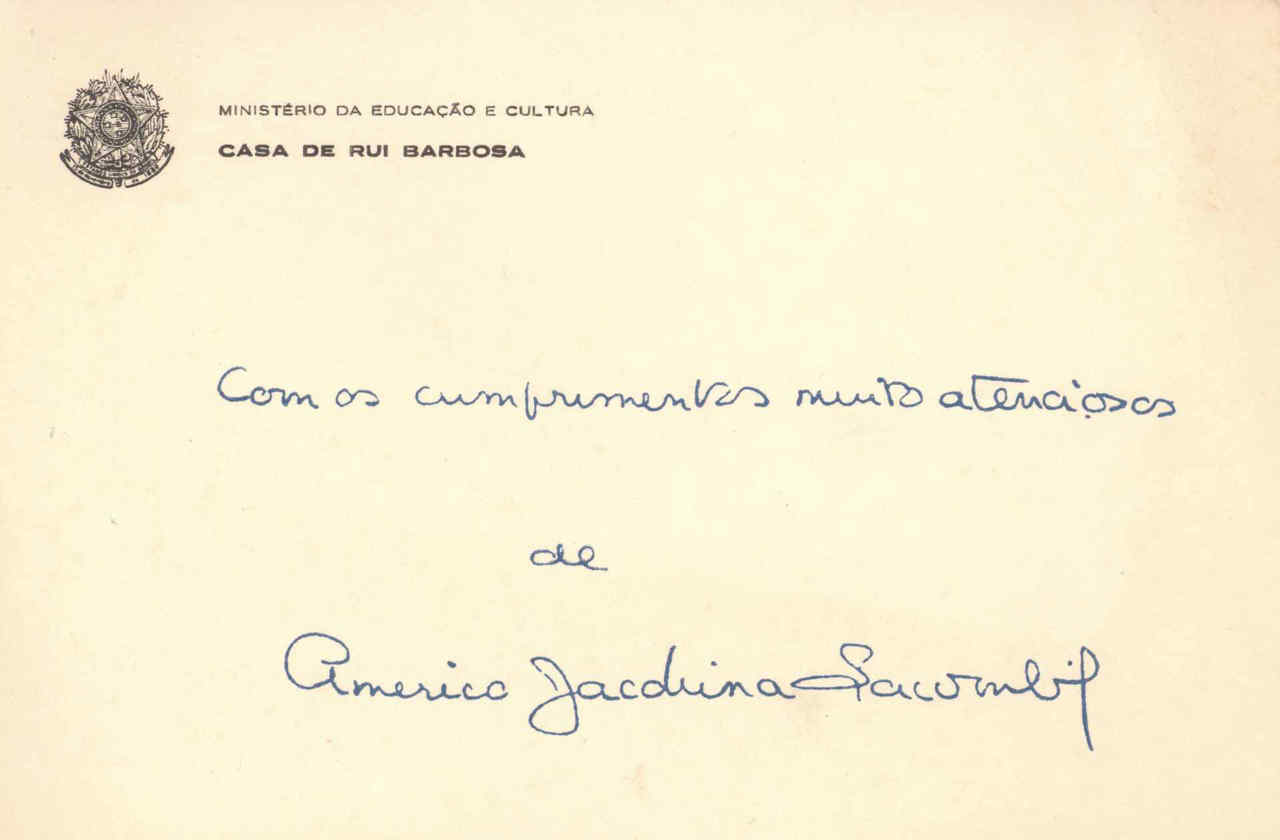 MINISTÉRIO DA EDUCAÇÃO E CULTURA
CASA DE RUI BARBOSA
Com os cumprimentos muito atenciosos
de
Americo Jacobina Lacombe